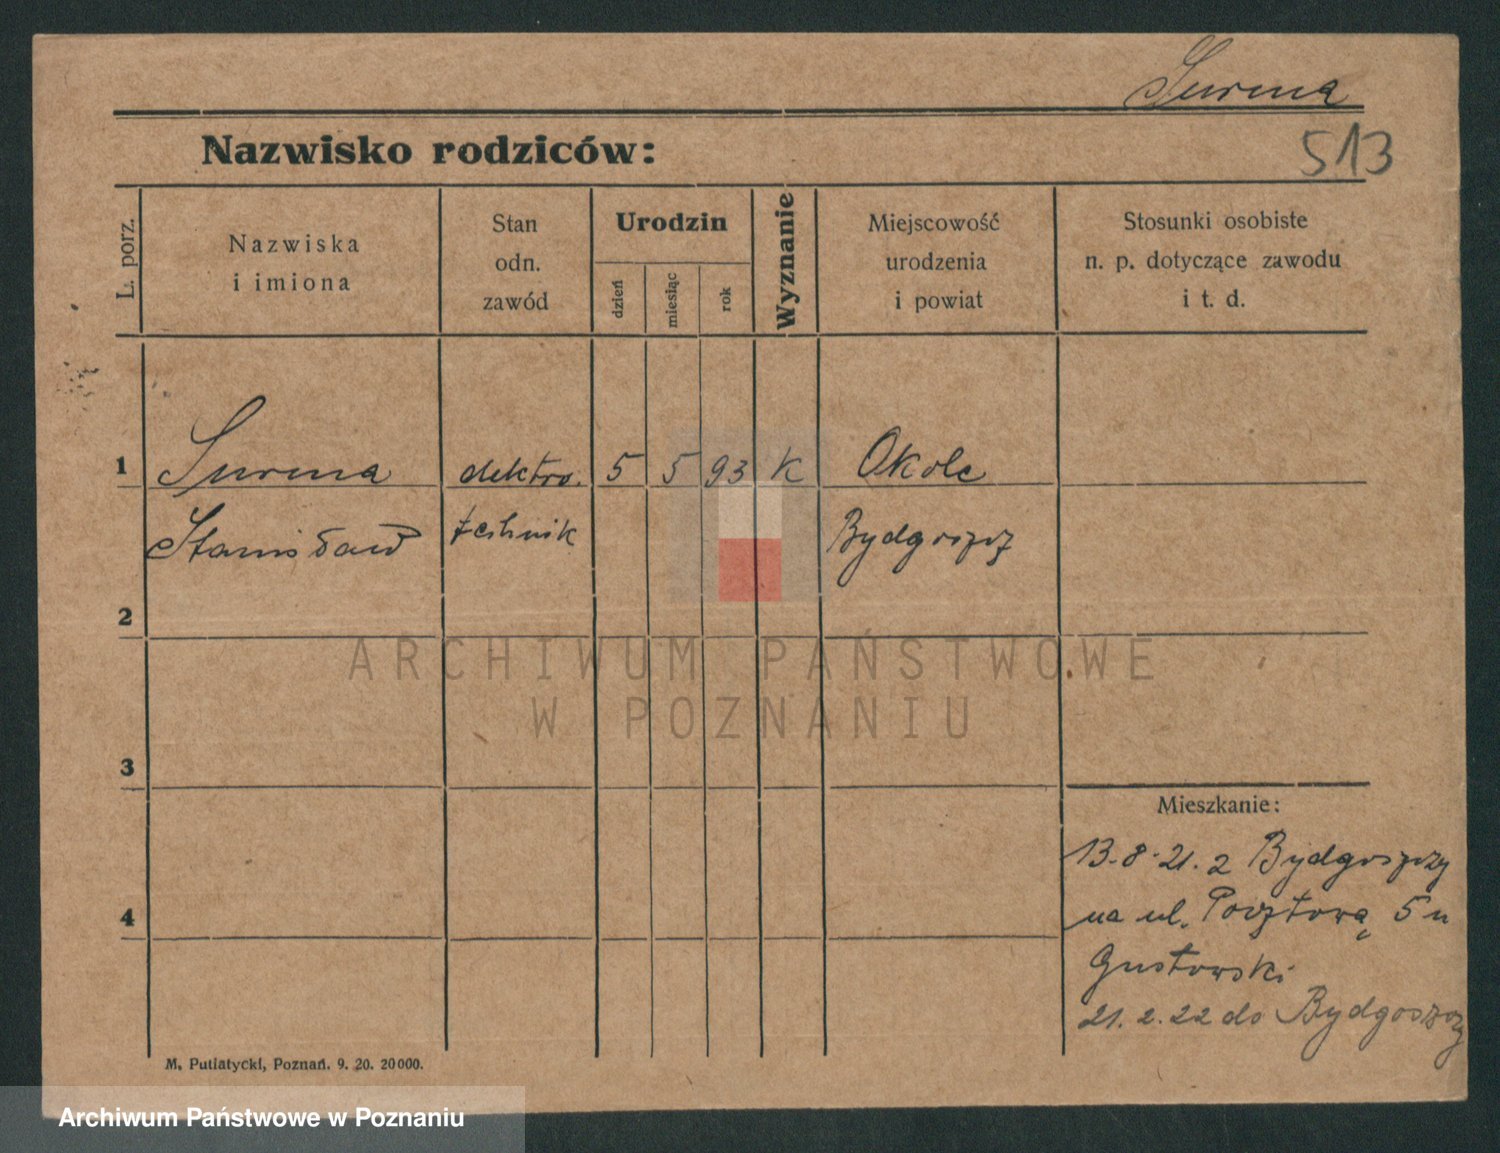 Surma
Nazwisko rodziców:
513
L. porz.
Nazwiska
i imiona
Stan
odn.
zawód
Urodzin
dzień
miesiąc
rok
Wyznanie
Miejscowość
urodzenia
i powiat
Stosunki osobiste
n. p. dotyczące zawodu
i t. d.
1 Surma elektro. 5 5 93 K Okole
Stanisław technik Bydgoszcz
2
ARCHIWUM PAŃSTWOWE
W POZNANIU
3
Mieszkanie:
13.8.21. z Bydgoszczy
4
na ul. Pocztową 5 u
Gustowski
21.2.22 do Bydgoszczy
M. Putiatycki, Poznań. 9. 20. 20000.
Archiwum Państwowe w Poznaniu